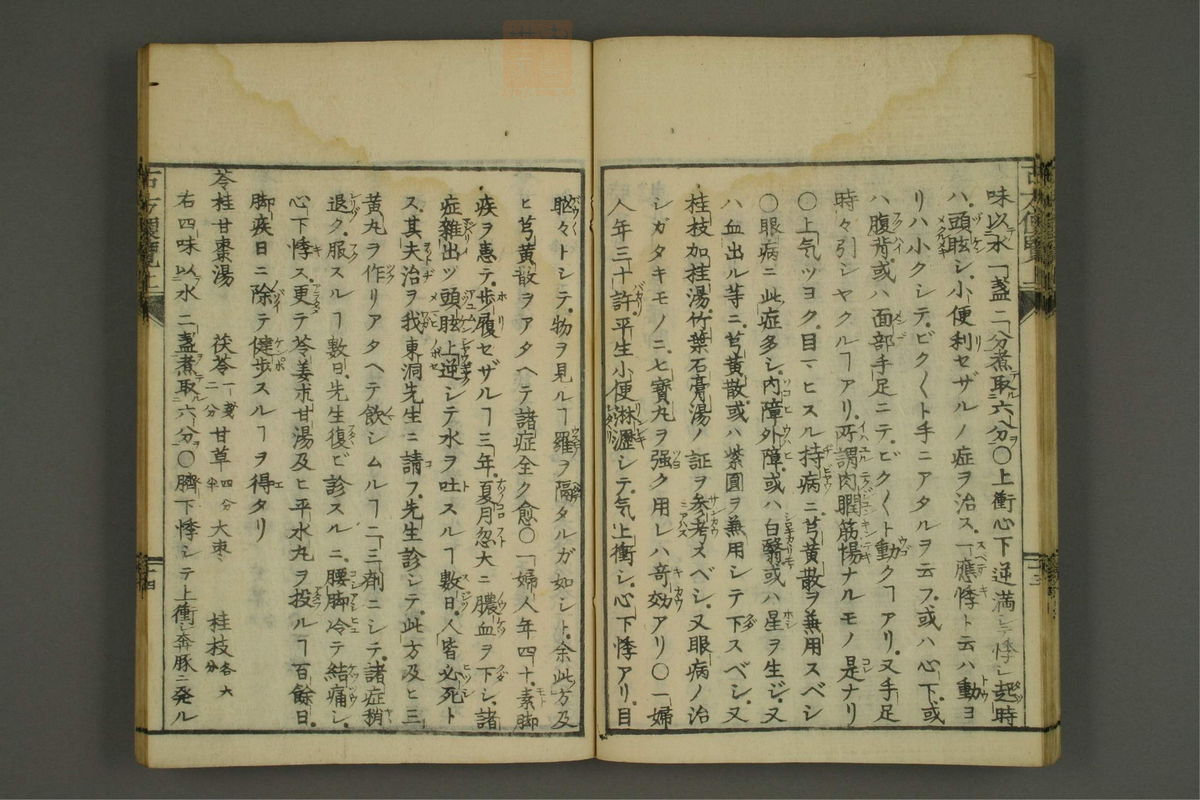 味以水一盞二分煮取六分〇上衝心下逆満シテ悸シ起時
ハ頭眩シ小便利セザルノ症ヲ治ス應悸ト云ハ動ヨ
リハ小クシテビク〱ト手ニアタルヲ云フ或ハ心下或
ハ腹背或ハ面部手足ニテビク〱ト動クヿアリ又手足
時々引シヤクルヿアリ所謂肉瞤筋惕ナルモノ是ナリ
〇上気ツヨク目マヒスル持病ニ芎黄散ヲ兼用スベシ
〇眼病ニ此症多シ内障外障或ハ白翳或ハ星ヲ生ジ又
ハ血出ル等ニ芎黄散或ハ紫圓ヲ兼用シテ下スベシ又
桂枝加桂湯竹葉石膏湯ノ証ヲ参考スベシ又眼病ノ治
シガタキモノニ七寳丸ヲ强ク用レハ奇効アリ〇一婦
人年三十許平生小便淋瀝シテ気上衝シ心下悸アリ目
䀮々トシテ物ヲ見ルヿ羅ヲ隔タルガ如シト余此方及
ヒ芎黄散ヲアタヘテ諸症全ク愈〇一婦人年四十素脚
疾ヲ患テ歩履セザルヿ三年夏月忽大ニ膿血ヲ下シ諸
症雜出ツ頭眩上逆シテ水ヲ吐スルヿ數日人皆必死ト
ス其夫治ヲ我東洞先生ニ請フ先生診シテ此方及ヒ三
黄丸ヲ作リアタヘテ飲シムルヿ二三劑ニシテ諸症稍
退ク服スルヿ數日先生復ビ診スルニ腰脚冷テ結痛シ
心下悸ス更テ苓姜朮甘湯及ヒ平水丸ヲ投ルヿ百餘日
脚疾日ニ除テ健歩スルヿヲ得タリ
苓桂甘棗湯 茯苓一錢二分 甘草四分半 大棗 桂枝各六分
右四味以水二盞煮取六分〇臍下悸シテ上衝シ奔豚ニ発ル
古方便覧 二
四